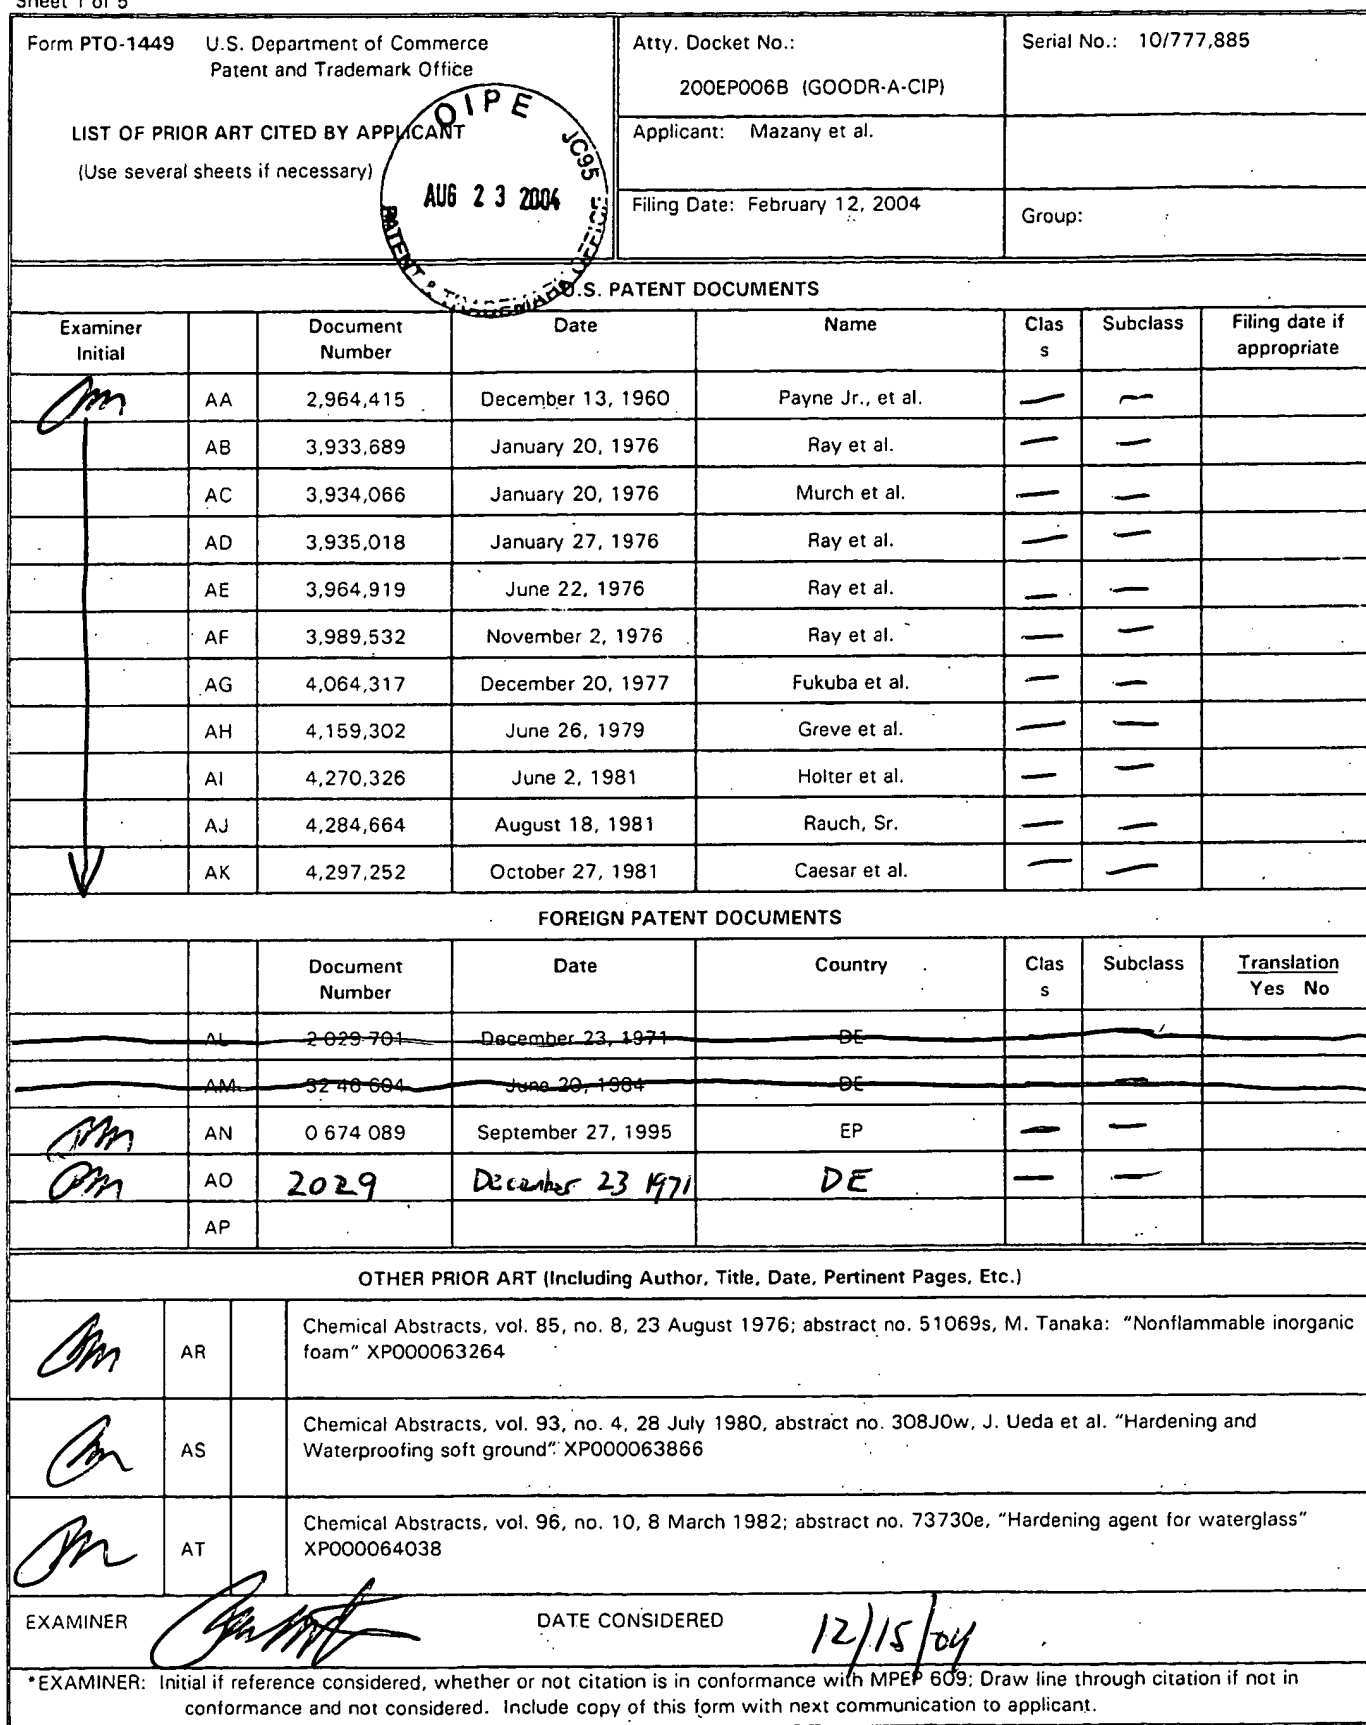 Sheet 1 of 5
Form PTO-1449 U.S. Department of Commerce
Patent and Trademark Office
LIST OF PRIOR ART CITED BY APPLICANT
(Use several sheets if necessary)
OIPE JC95
AUG 23 2004
PATENT & TRADEMARK OFFICE
Atty. Docket No.:
200EP006B (GOODR-A-CIP)
Serial No.: 10/777,885
Applicant: Mazany et al.
Filing Date: February 12, 2004
Group:
U.S. PATENT DOCUMENTS
Examiner Initial Document Number Date Name Clas s Subclass Filing date if appropriate
AA 2,964,415 December 13, 1960 Payne Jr., et al. — —
AB 3,933,689 January 20, 1976 Ray et al. — —
AC 3,934,066 January 20, 1976 Murch et al. — —
AD 3,935,018 January 27, 1976 Ray et al. — —
AE 3,964,919 June 22, 1976 Ray et al. — —
AF 3,989,532 November 2, 1976 Ray et al. — —
AG 4,064,317 December 20, 1977 Fukuba et al. — —
AH 4,159,302 June 26, 1979 Greve et al. — —
AI 4,270,326 June 2, 1981 Holter et al. — —
AJ 4,284,664 August 18, 1981 Rauch, Sr. — —
AK 4,297,252 October 27, 1981 Caesar et al. — —
FOREIGN PATENT DOCUMENTS
Document Number Date Country Clas s Subclass Translation Yes No
AL 2 029 701 December 23, 1971 DE
AM 32 46 604 June 20, 1984 DE
AN 0 674 089 September 27, 1995 EP — —
AO 2029 December 23 1971 DE — —
AP
OTHER PRIOR ART (Including Author, Title, Date, Pertinent Pages, Etc.)
AR Chemical Abstracts, vol. 85, no. 8, 23 August 1976; abstract no. 51069s, M. Tanaka: "Nonflammable inorganic
foam" XP000063264
AS Chemical Abstracts, vol. 93, no. 4, 28 July 1980, abstract no. 308J0w, J. Ueda et al. "Hardening and
Waterproofing soft ground" XP000063866
AT Chemical Abstracts, vol. 96, no. 10, 8 March 1982; abstract no. 73730e, "Hardening agent for waterglass"
XP000064038
EXAMINER DATE CONSIDERED 12/15/04
*EXAMINER: Initial if reference considered, whether or not citation is in conformance with MPEP 609; Draw line through citation if not in
conformance and not considered. Include copy of this form with next communication to applicant.